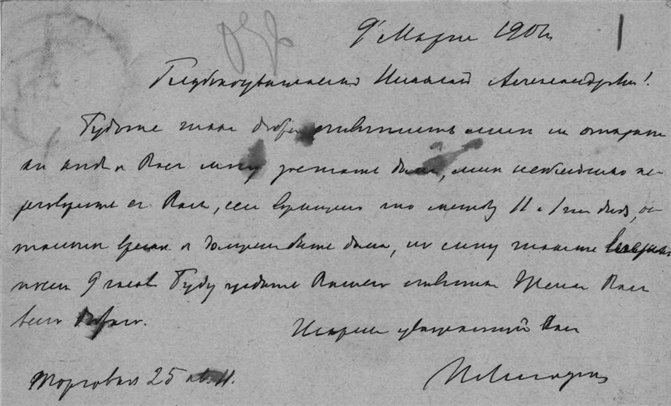 9 Марта 190
Глубокоуважаемый Николай Александрович!
Будьте так добры ответить мне
когда я Вас могу застать дома, мне необходимо пе-
реговорить с Вами, если возможно то между 11 и 1 ч. дня,
время я дома, но могу также вечером
после 9 часов. Буду ждать Вашего ответа. Вам
всего доброго.
Искренне уважающий Вас
Торговая 25 кв. 11.